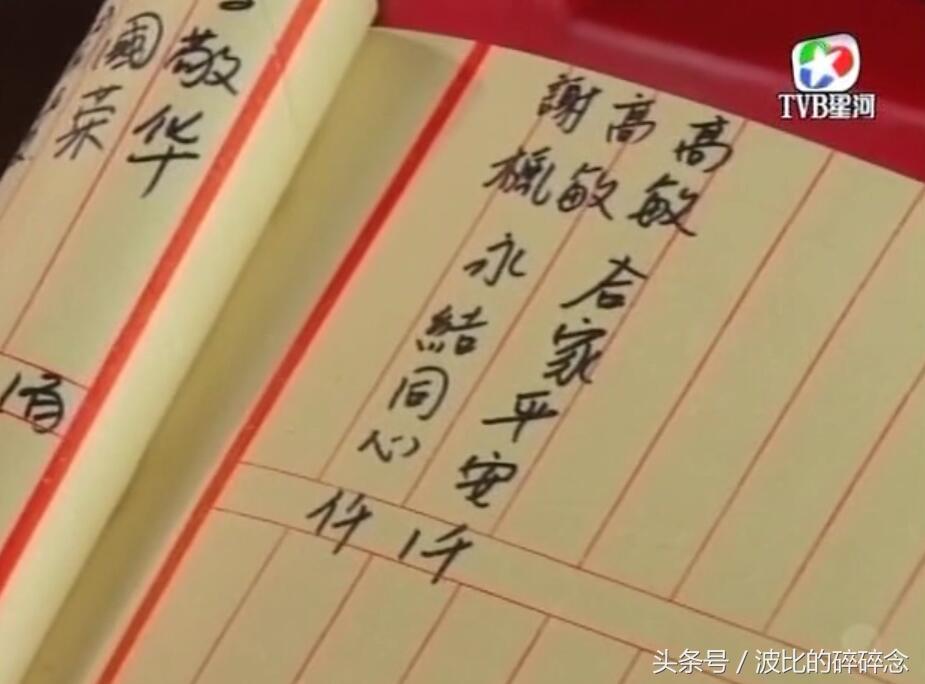 TVB星河
高敏 合家平安 仟
高敏
謝楓 永結同心 仟
敬华
國荣
头条号 / 波比的碎碎念